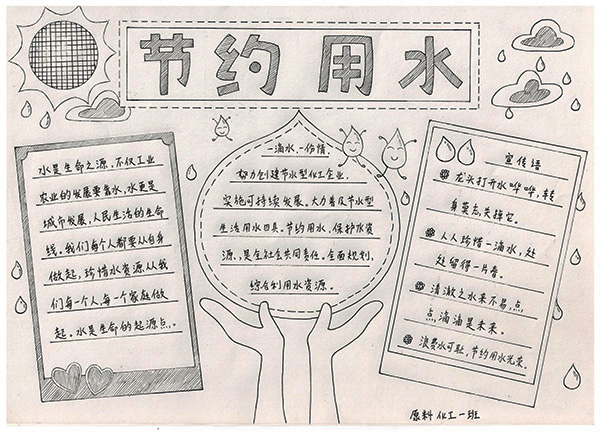 节约用水
水是生命之源，不仅工业
农业的发展要靠水，水更是
城市发展，人民生活的生命
线。我们每个人都要从自身
做起，珍惜水资源从我
们每一个人，每一个家庭做
起。水是生命的起源点。
一滴水，一份情，
努力创建节水型化工企业，
实施可持续发展。大力普及节水型
生活用水四具。节约用水，保护水资
源，是全社会共同责任。全面规划，
综合利用水资源。
宣传语
龙头打开水哗哗，转
身莫忘关掉它。
人人珍惜一滴水，处
处留得一片春。
清澈之水来不易，点
点滴滴是未来。
浪费水可耻，节约用水光荣。
原料 化工一班